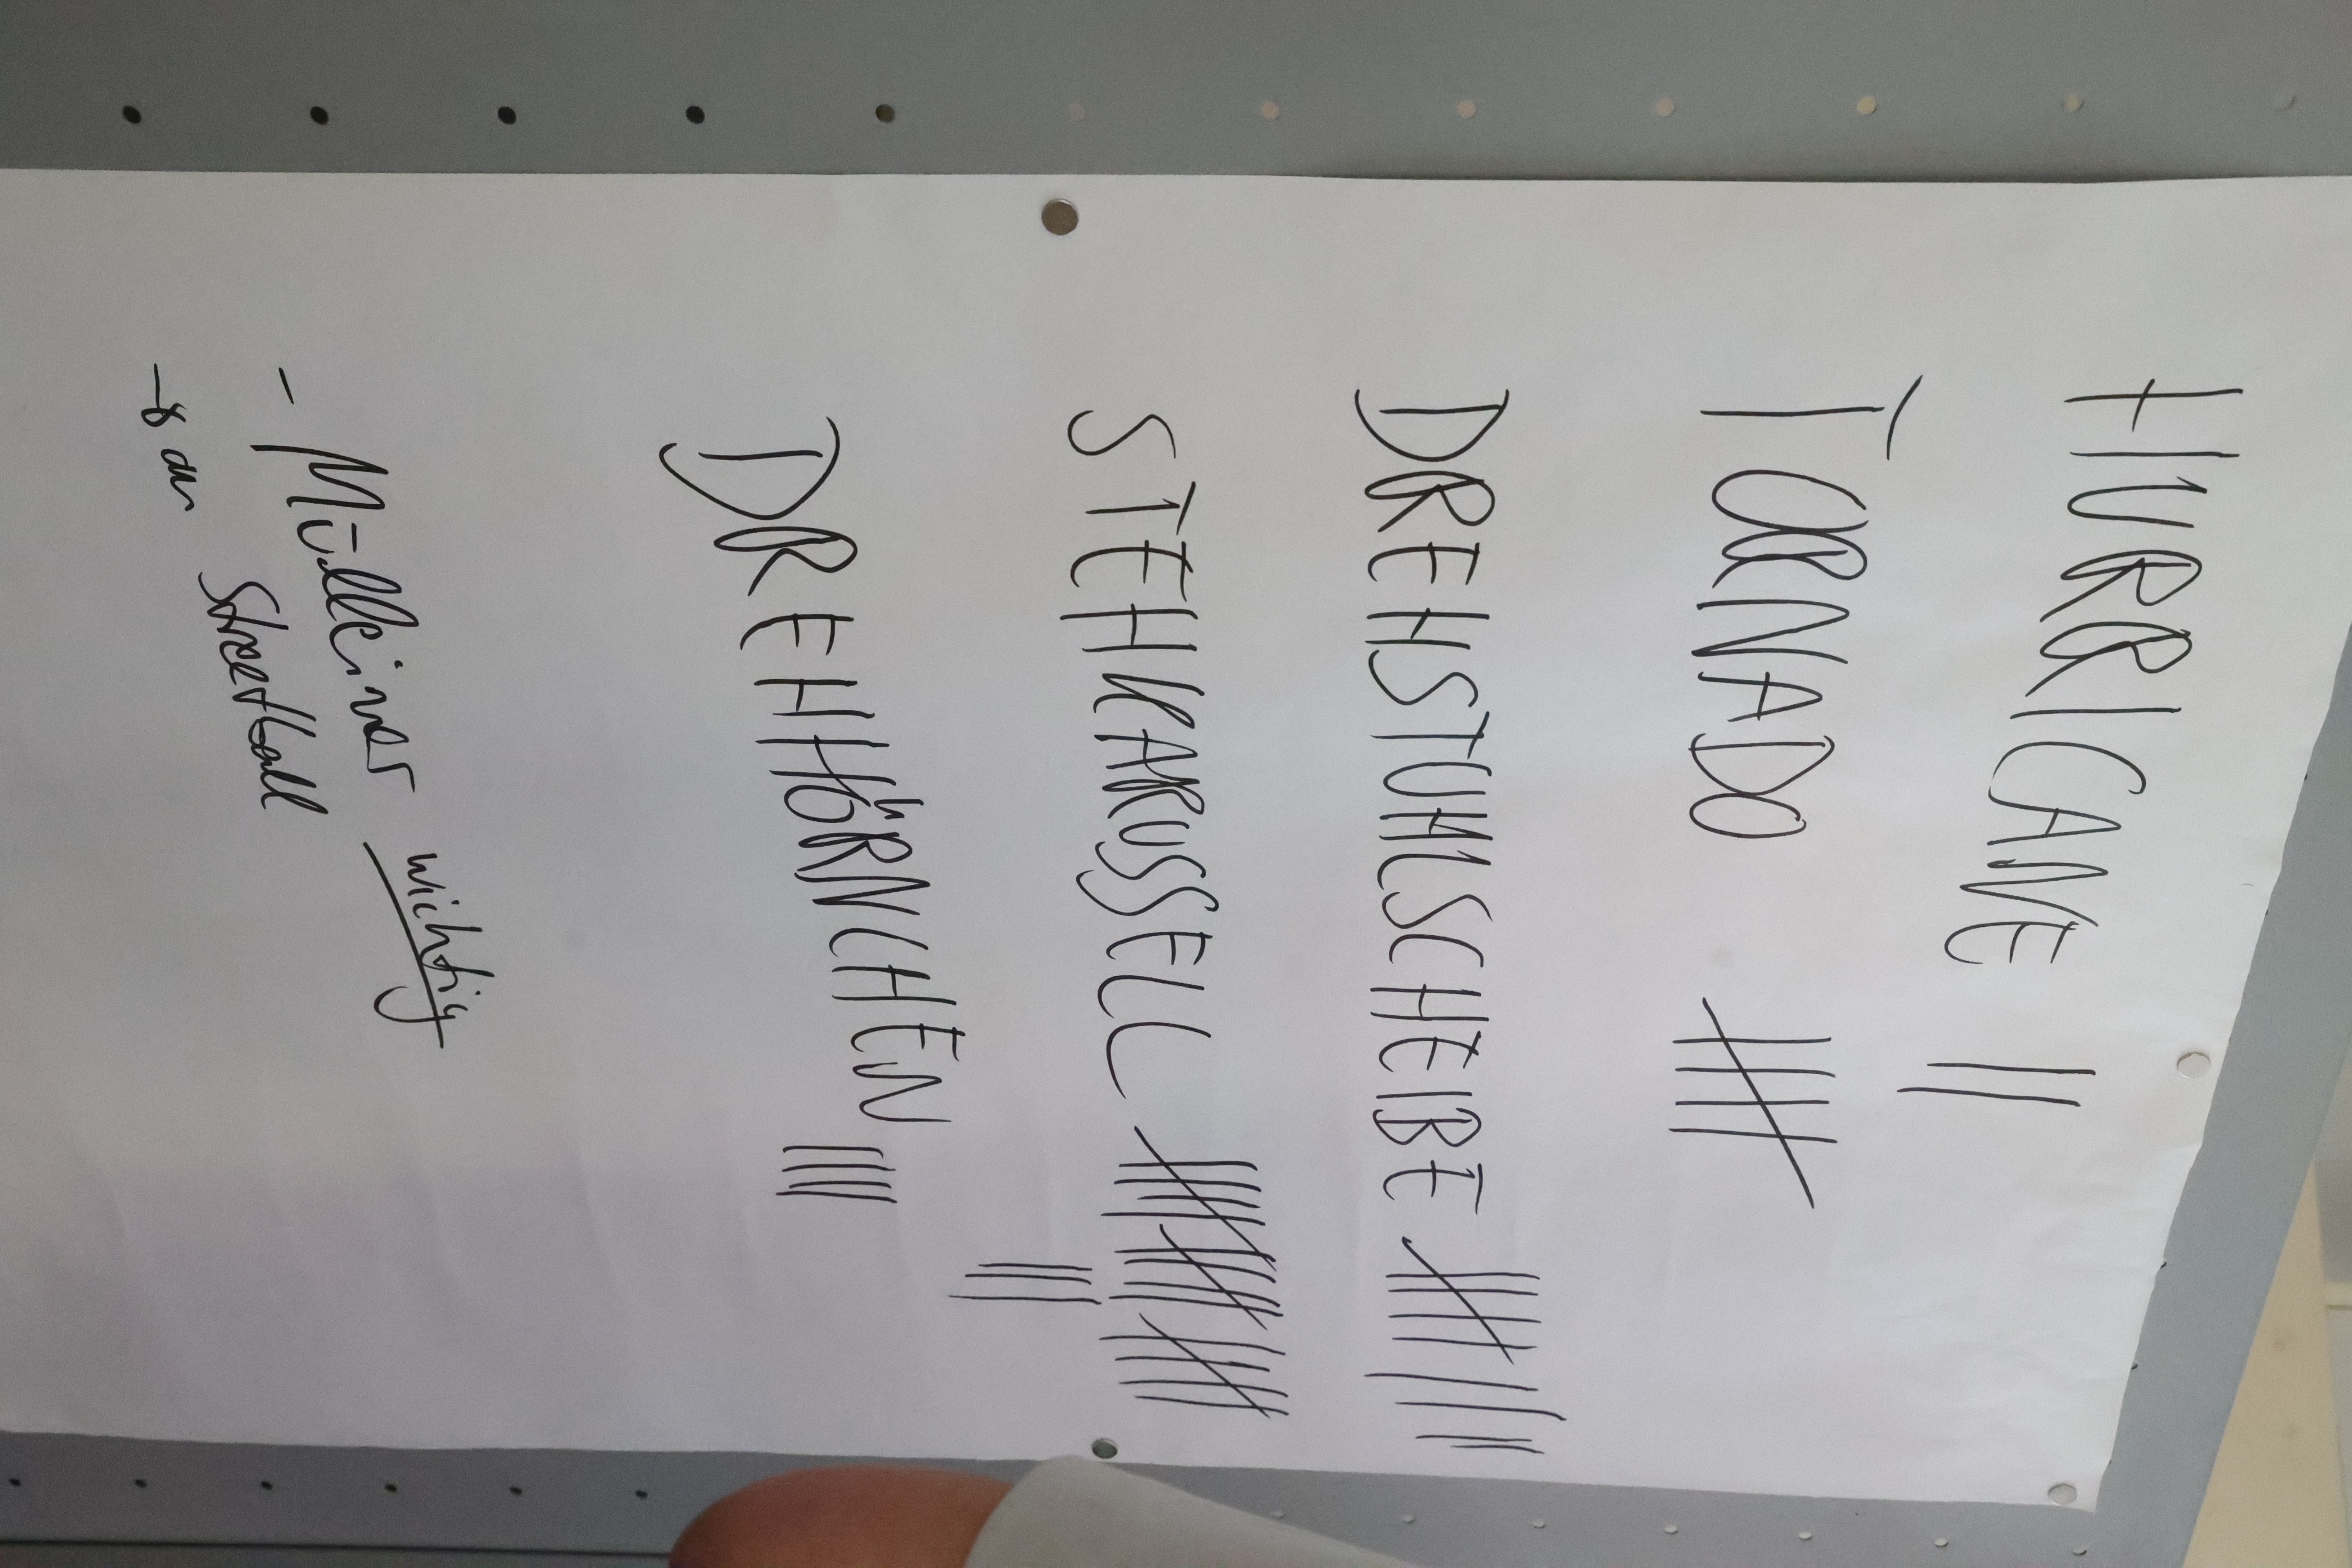 HURRICANE ||
TORNADO ||||
DREHSTUHLSCHEIBE |||| ||||
STEHKARUSSELL |||| |||| |||| |||
DREHHÖRNCHEN ||||
- Mülleimer wichtig
- Streetball